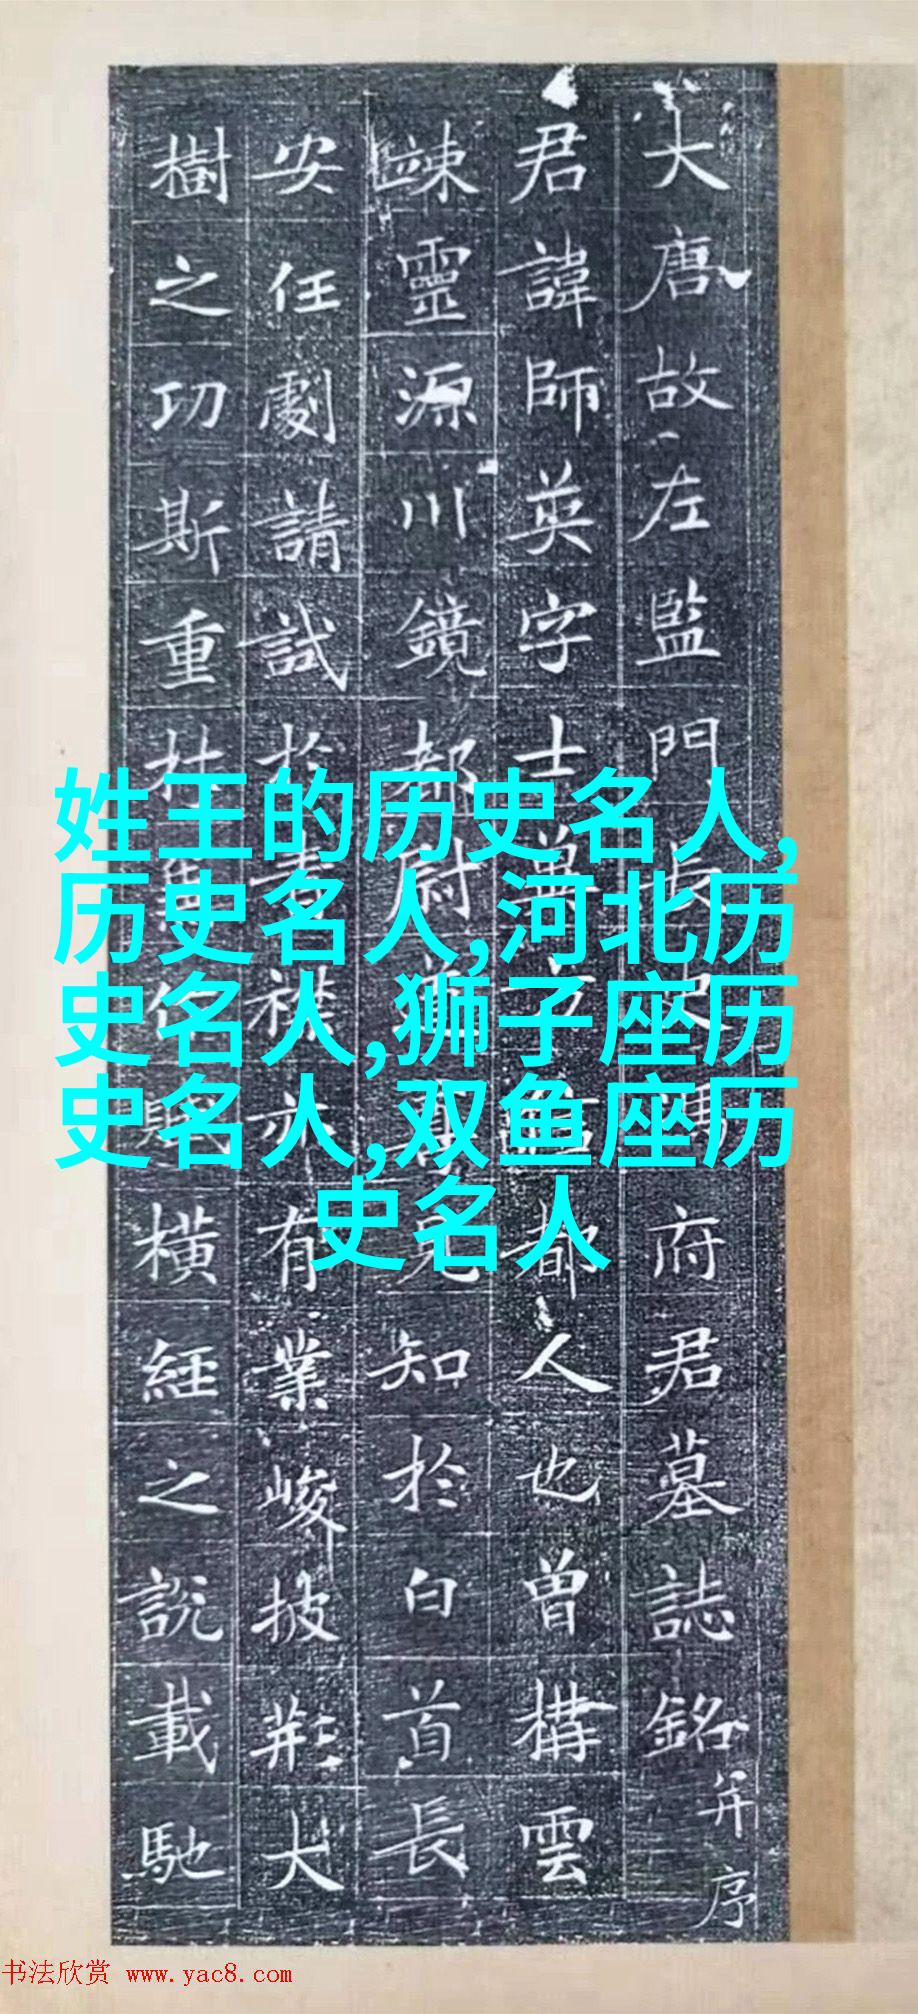 大唐故左監門長史馮府君墓誌銘并序
君諱師英字士都人也曾構雲
竦靈源川鏡都尉知於白首長
安任劇請試於襟亦有業峻披荊大
樹之功斯重橫經之說載馳
姓王的历史名人,
历史名人,河北历
史名人,狮子座历
史名人,双鱼座历
史名人
书法欣赏 www.yac8.com